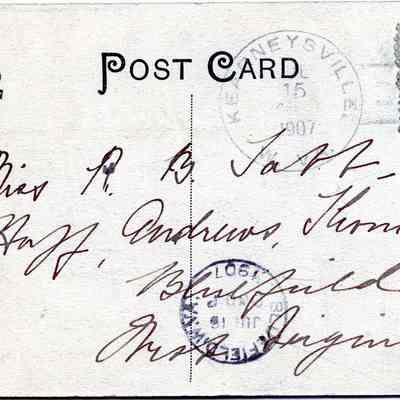 POST CARD
KEARNEYSVILLE
15
1907
W. V
Miss R. B. Tabb
Huff, Andrews, Thom
Bluefield
West Virgin
BLUEFIELD W.VA.
JUL 16
1907